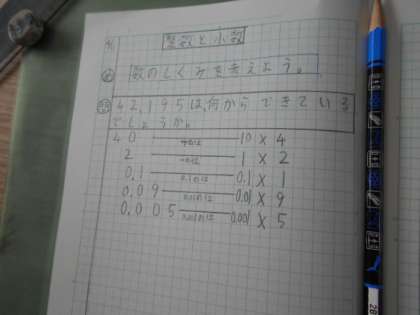 整数と小数
め 数のしくみを考えよう。
42.195は、何からできている
でしょうか。
40 十の位 10 × 4
2 一の位 1 × 2
0.1 0.1の位 0.1 × 1
0.09 0.01の位 0.01 × 9
0.005 0.001の位 0.001 × 5